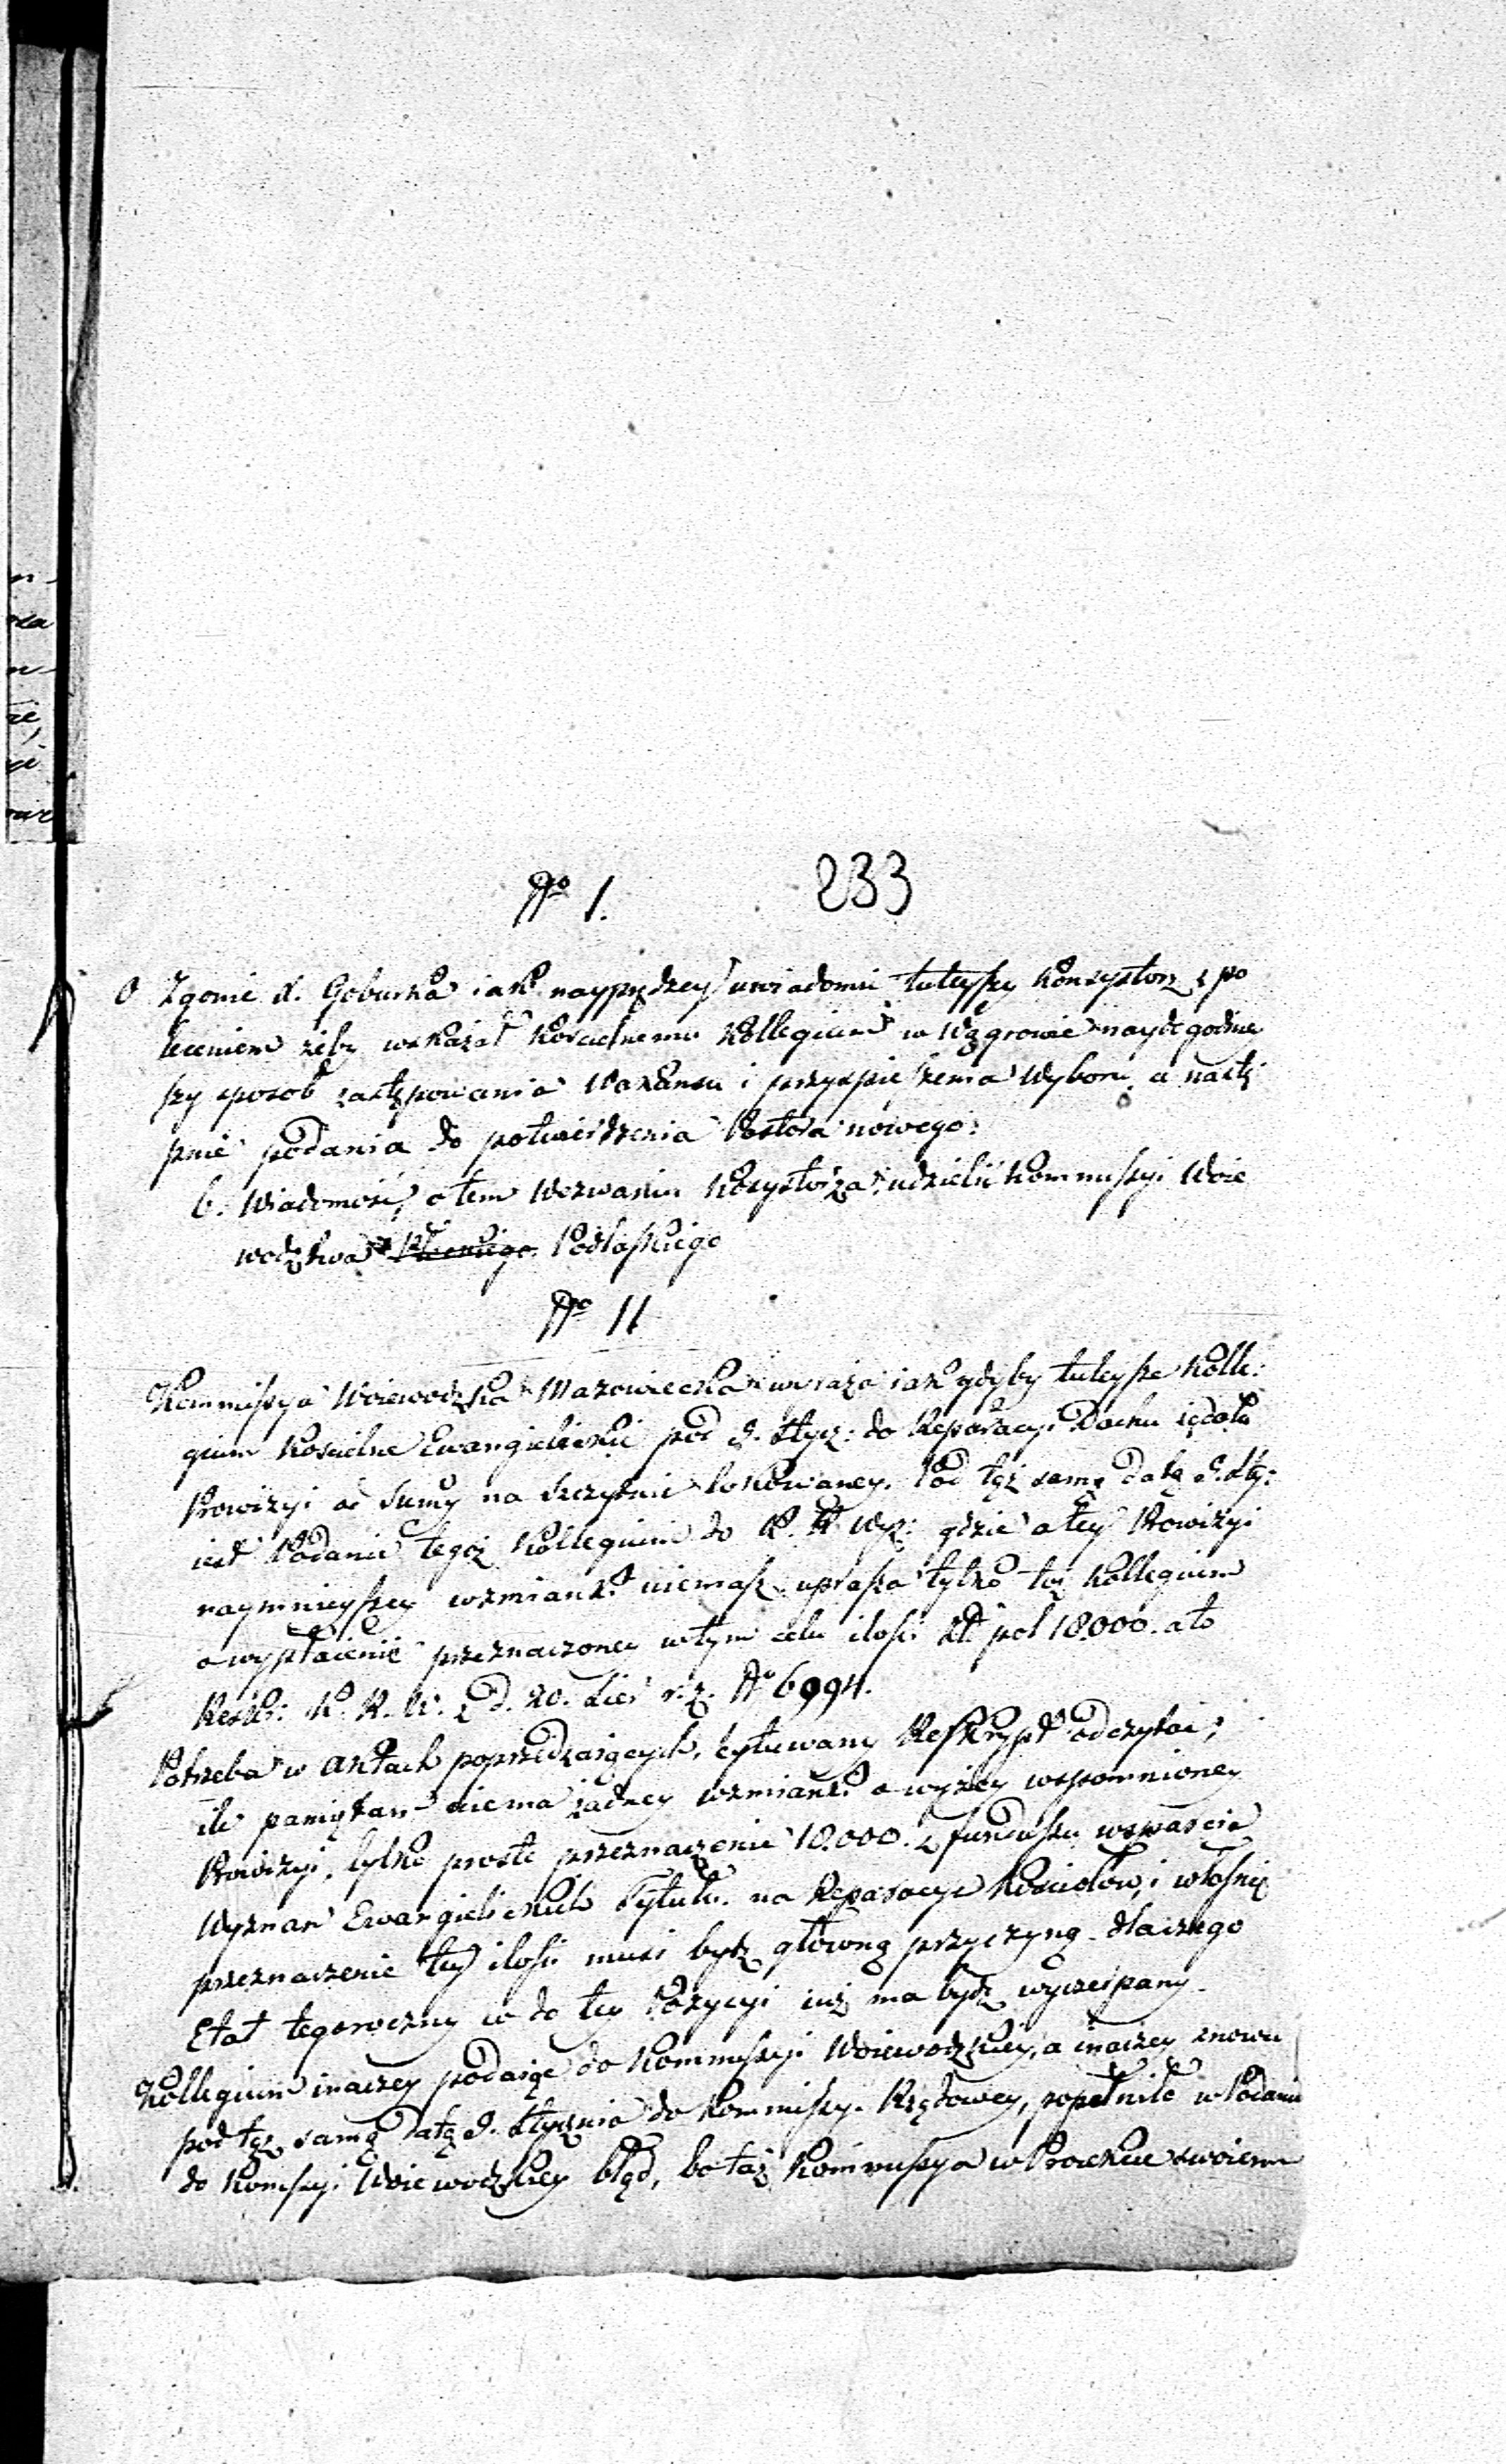 233
No 1.
O Zgonie X. Goburka iak nayprędzey uwiadomić tuteyszy Konsystorz z po
leceniem żeby wskazał Kościelnemu Kollegium w Węgrowie naydogodniey
szy sposob zastępowania Wakansu i przyspieszenia Wyboru, a nastę
pnie podania do potwierdzenia Pastora nowego.
b. Wiadomość o tem Wezwaniu Konsystorza udzielić Kommissyi Woie
wodztwa Podlaskiego
No 11
Kommissya Woiewodzka Mazowiecka wyraża iak gdyby tuteysze Kolle:
gium Kościelne Ewangielickie pod 9. Stycz: do Reparacyi Dachu żądało
Prowizyi od Sumy na Szczytnie lokowaney. Pod tęż samę datą 9. Sty:
iest Podanie tegoż Kollegium do K. R. Wyz: gdzie o tey Prowizyi
naymnieyszey wzmianki niemasz, uprasza tylko toż Kollegium
o wypłacenie przeznaczoney w tym celu ilości Zł. pol 18.000. a to
Reskr: K. R. W. z d. 20. Sier r. z. No 6994.
Potrzeba w Aktach poprzedzaiących, cytowany Reskrypt odczytać;
ile pamiętam niema żadney wzmianki o wyżey wspomnioney
Prowizyi, tylko proste przeznaczenie 18.000. z funduszu wsparcia
Wyznań Ewangielickich Tytułu. na Reparacye Kościołów, i właśnie
przeznaczenie tey ilości musi bydz główną przyczyną dlaczego
Etat tegoroczny co do tey Pozycyi iuż ma bydz wyczerpany.
Kollegium inaczey podaiąc do Kommissyi Woiewodzkiey, a inaczey znowu
pod tęż samą datą 9. Stycznia do Kommissyi Rządowey, popełniło w Podaniu
do Komissyi Woiewodzkiey błąd, bo taż Kommissya w Proiekcie swoiem